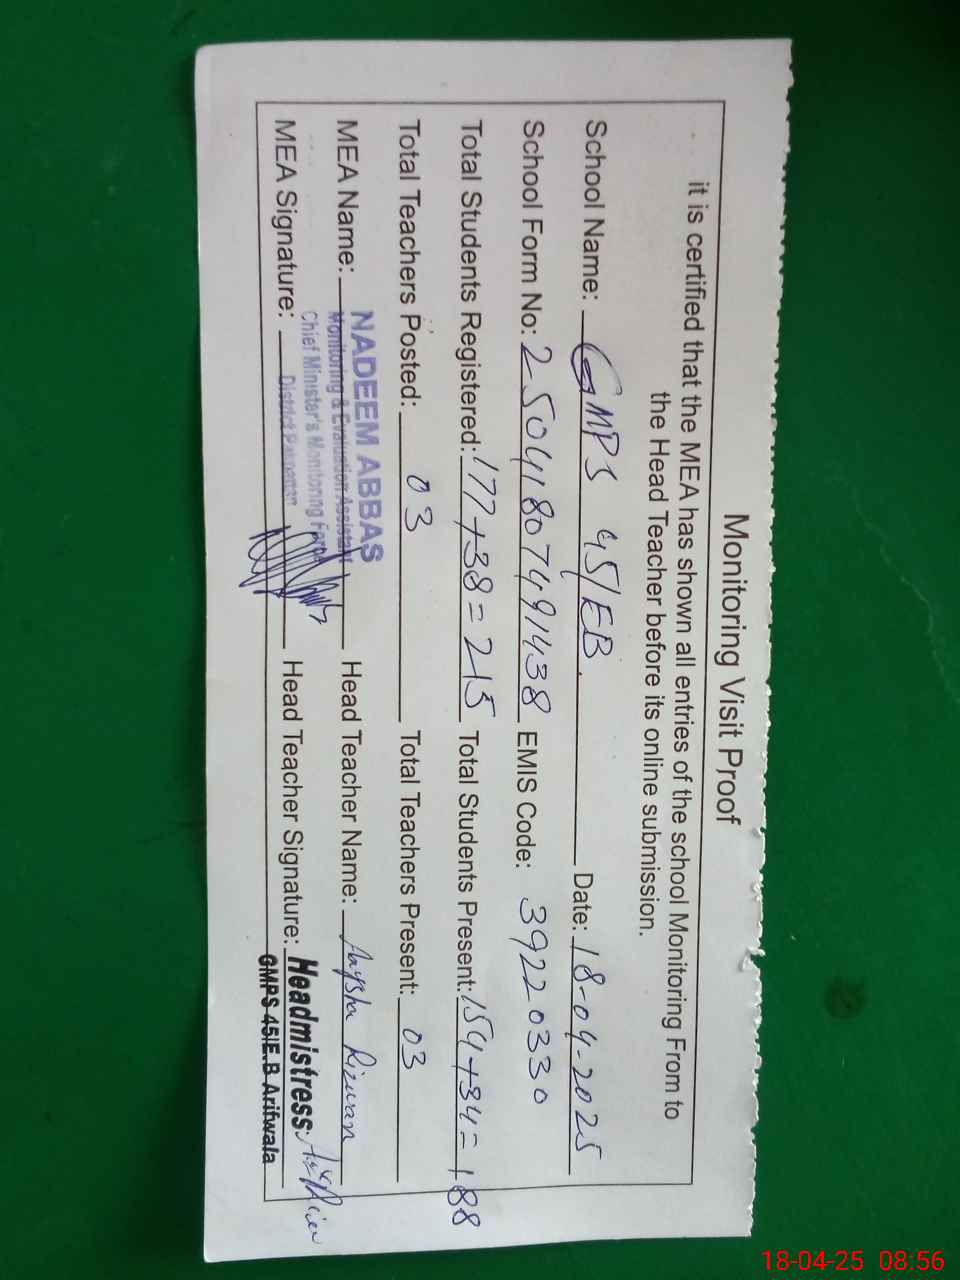 Monitoring Visit Proof
it is certified that the MEA has shown all entries of the school Monitoring From to
the Head Teacher before its online submission.
School Name: GMPS 45/EB. Date: 18-04-2025
School Form No: 25041807491438 EMIS Code: 39220330
Total Students Registered: 177+38=215 Total Students Present: 154+34=188
Total Teachers Posted: 03 Total Teachers Present: 03
MEA Name: NADEEM ABBAS Head Teacher Name: Aysha Rizwan
Monitoring & Evaluation Assistant
Chief Minister's Monitoring Force
MEA Signature: District Pakpattan Head Teacher Signature: Headmistress
GMPS 45/E.B Arifwala
18-04-25 08:56